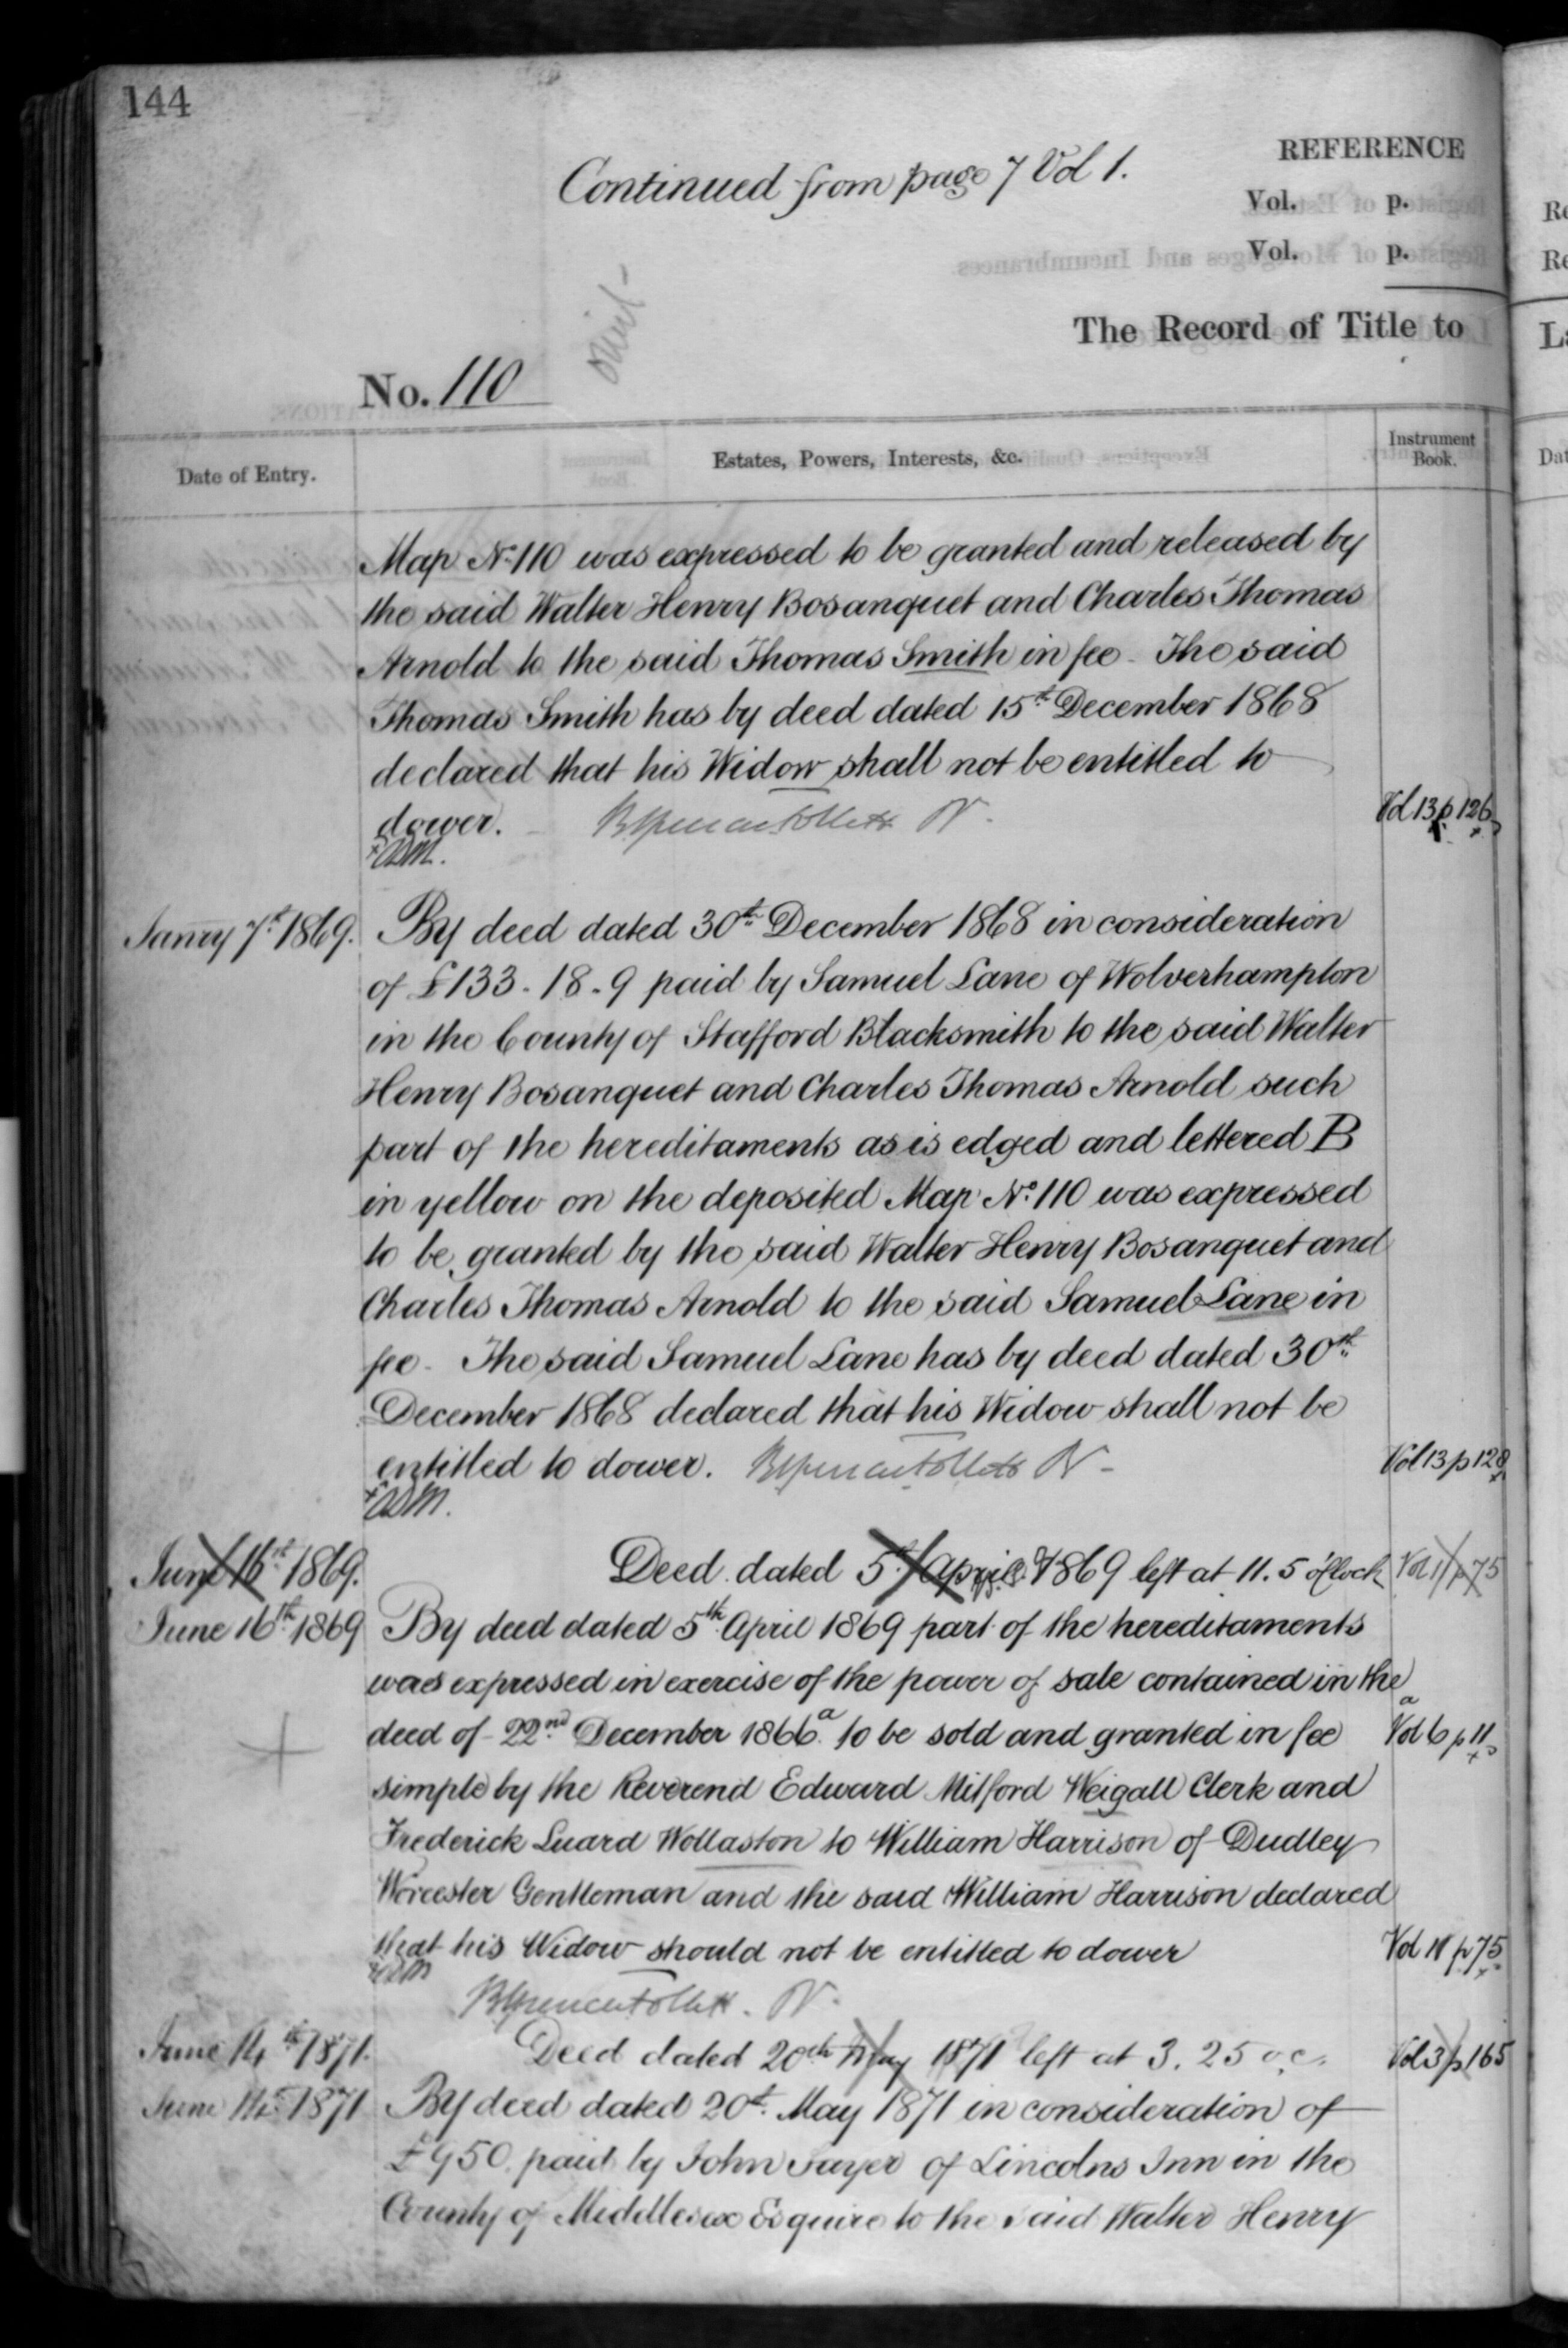 144
Continued from page 7 Vol 1.
REFERENCE
Vol. p.
Vol. p.
The Record of Title to
No. 110
Date of Entry.
Estates, Powers, Interests, &c.
Instrument Book.
Map No. 110 was expressed to be granted and released by
the said Walter Henry Bosanquet and Charles Thomas
Arnold to the said Thomas Smith in fee - The said
Thomas Smith has by deed dated 15th December 1868
declared that his Widow shall not be entitled to
dower. Vol 13 p 126
Janry 7th 1869. By deed dated 30th December 1868 in consideration
of £133-18-9 paid by Samuel Lane of Wolverhampton
in the County of Stafford Blacksmith to the said Walter
Henry Bosanquet and Charles Thomas Arnold such
part of the hereditaments as is edged and lettered B
in yellow on the deposited Map No. 110 was expressed
to be granted by the said Walter Henry Bosanquet and
Charles Thomas Arnold to the said Samuel Lane in
fee - The said Samuel Lane has by deed dated 30th
December 1868 declared that his Widow shall not be
entitled to dower. Vol 13 p 128
June 16th 1869. Deed dated 5th April 1869 left at 11.5 o'clock Vol 11 p 75
June 16th 1869 By deed dated 5th April 1869 part of the hereditaments
was expressed in exercise of the power of sale contained in the
deed of 22nd December 1866 a to be sold and granted in fee a Vol 6 p 11
simple by the Reverend Edward Mitford Weigall Clerk and
Frederick Luard Wollaston to William Harrison of Dudley
Worcester Gentleman and the said William Harrison declared
that his Widow should not be entitled to dower Vol 11 p 75
June 14th 1871. Deed dated 20th May 1871 left at 3.25 o.c. Vol 3 p 165
June 14th 1871 By deed dated 20th May 1871 in consideration of
£950 paid by John Sayer of Lincolns Inn in the
County of Middlesex Esquire to the said Walter Henry